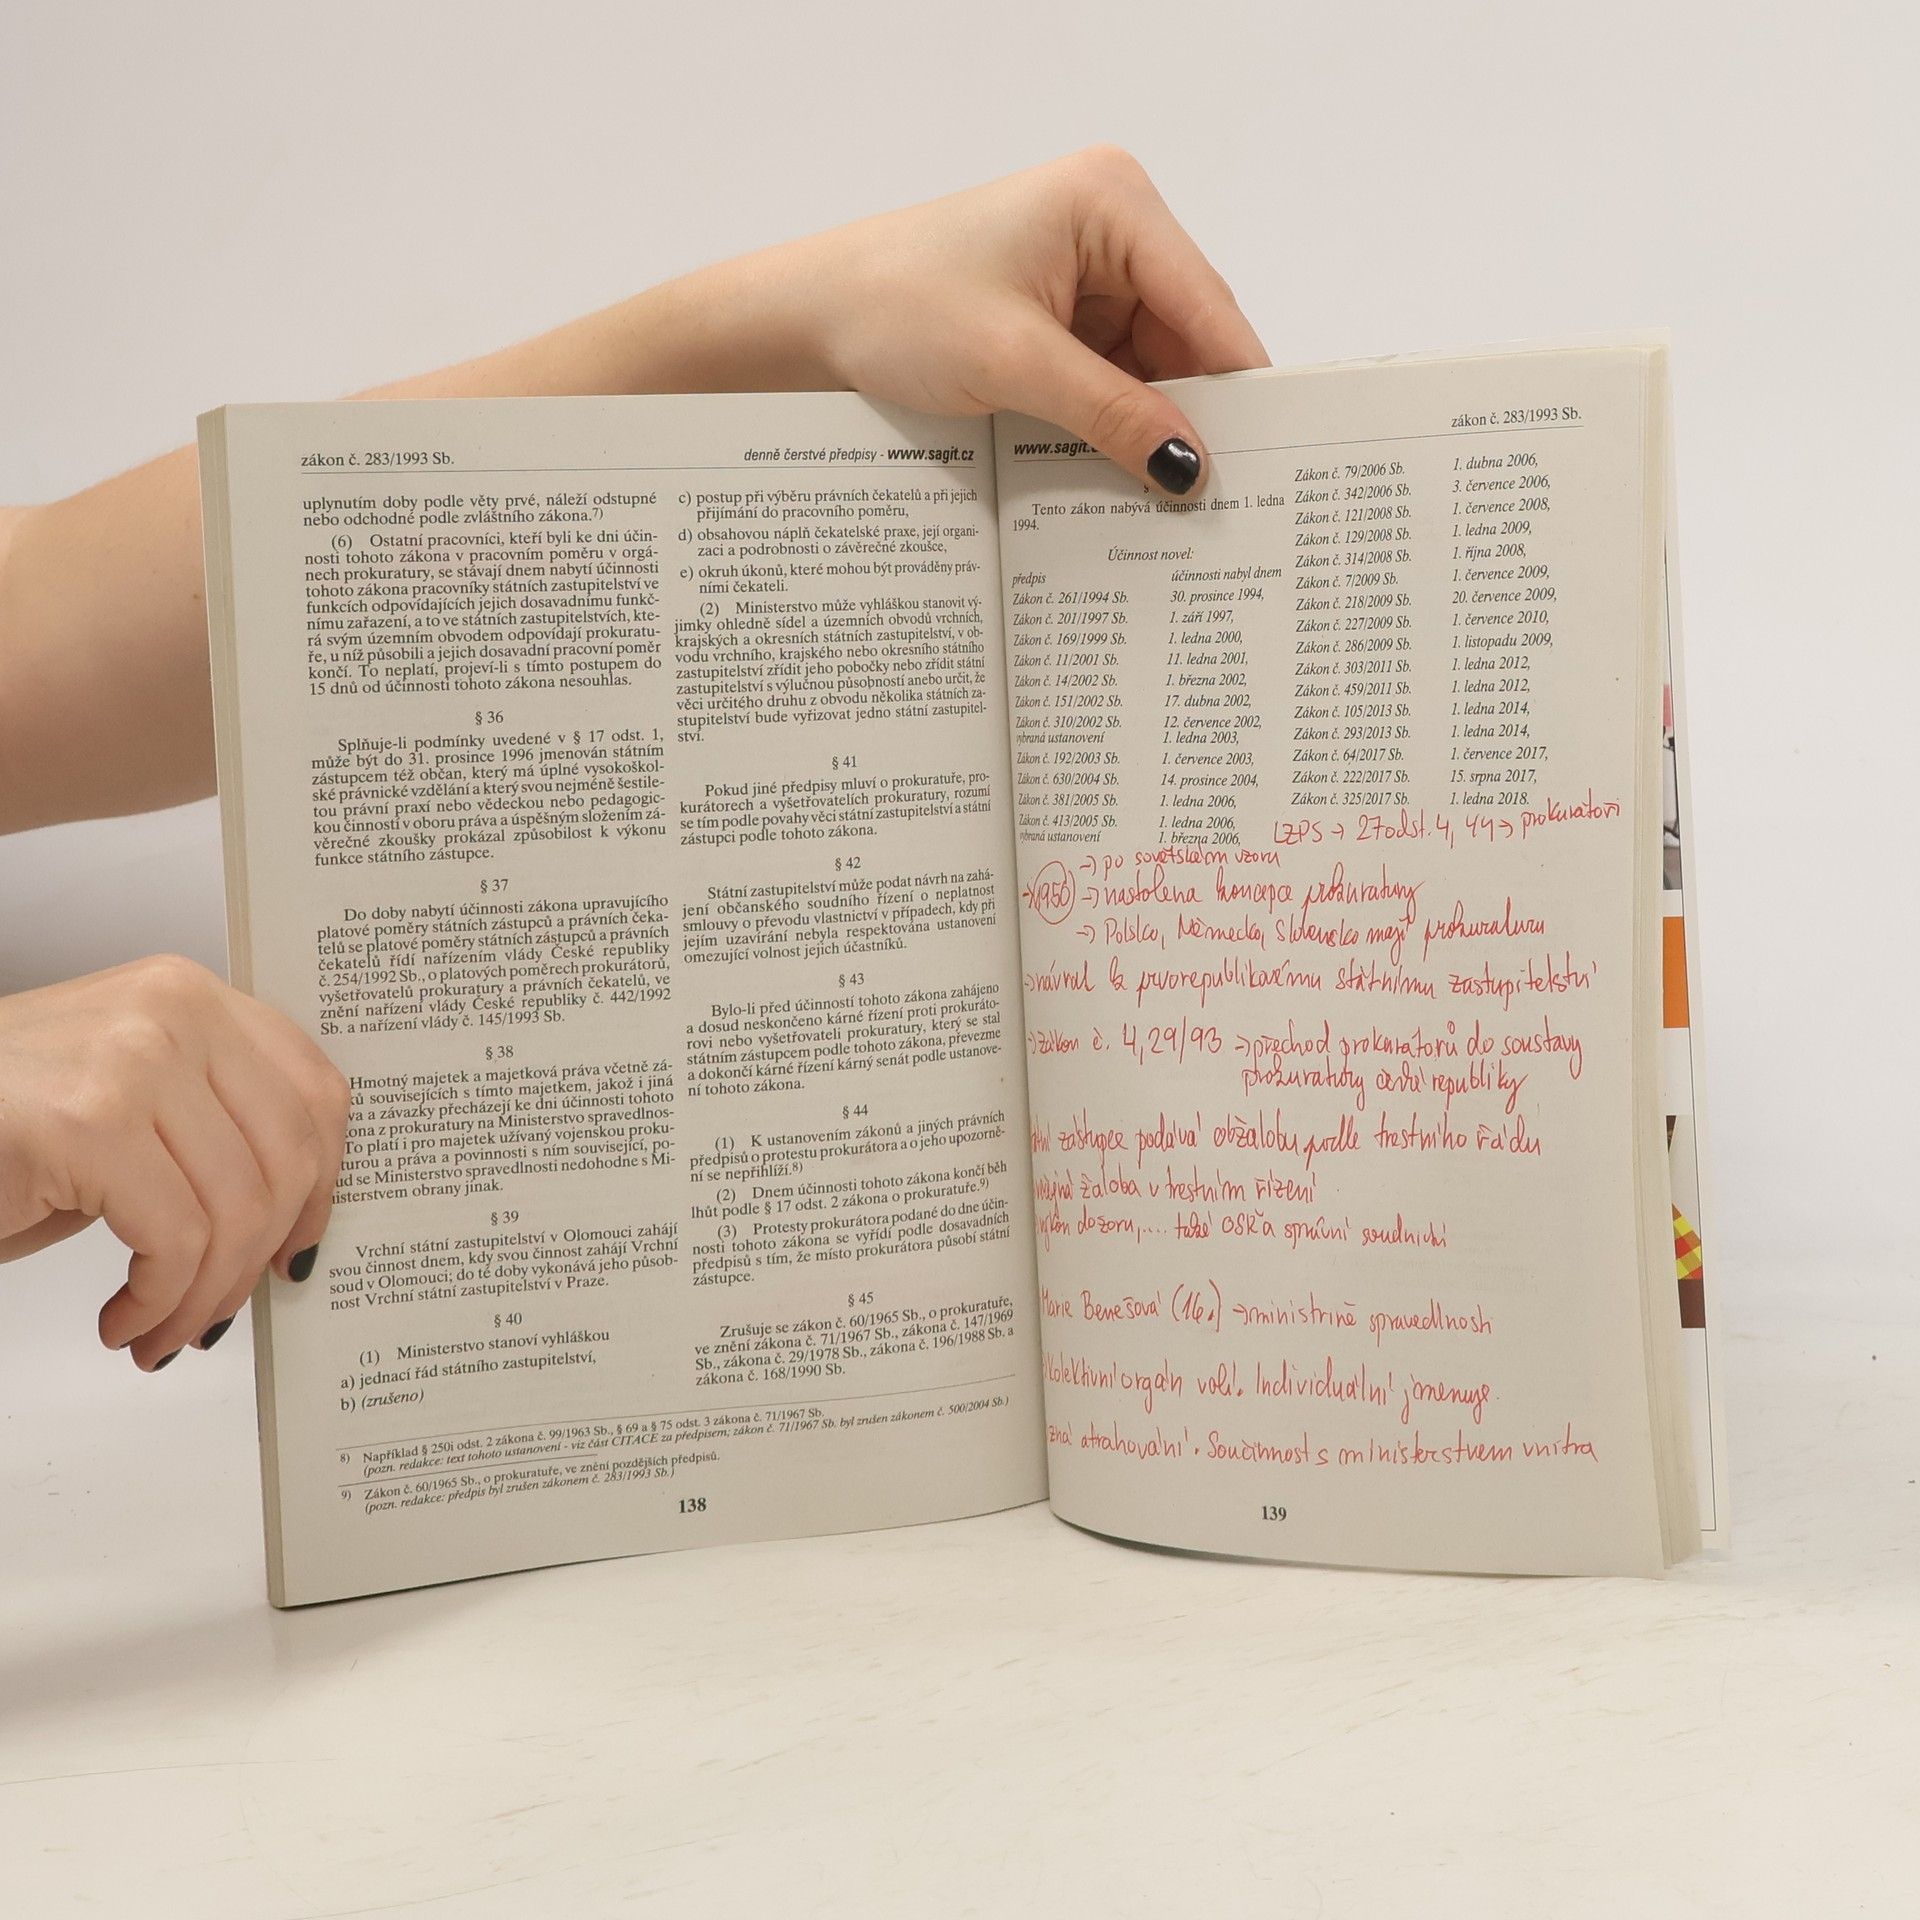 zákon č. 283/1993 Sb.
denně čerstvé předpisy - www.sagit.cz
uplynutím doby podle věty prvé, náleží odstupné
nebo odchodné podle zvláštního zákona.7)
(6) Ostatní pracovníci, kteří byli ke dni účin-
nosti tohoto zákona v pracovním poměru v orgá-
nech prokuratury, se stávají dnem nabytí účinnosti
tohoto zákona pracovníky státních zastupitelství ve
funkcích odpovídajících jejich dosavadnímu funkč-
nímu zařazení, a to ve státních zastupitelstvích, kte-
rá svým územním obvodem odpovídají prokuratu-
ře, u níž působili a jejich dosavadní pracovní poměr
končí. To neplatí, projeví-li s tímto postupem do
15 dnů od účinnosti tohoto zákona nesouhlas.
§ 36
Splňuje-li podmínky uvedené v § 17 odst. 1,
může být do 31. prosince 1996 jmenován státním
zástupcem též občan, který má úplné vysokoškol-
ské právnické vzdělání a který svou nejméně šestile-
tou právní praxí nebo vědeckou nebo pedagogic-
kou činností v oboru práva a úspěšným složením zá-
věrečné zkoušky prokázal způsobilost k výkonu
funkce státního zástupce.
§ 37
Do doby nabytí účinnosti zákona upravujícího
platové poměry státních zástupců a právních čeka-
telů se platové poměry státních zástupců a právních
čekatelů řídí nařízením vlády České republiky
č. 254/1992 Sb., o platových poměrech prokurátorů,
vyšetřovatelů prokuratury a právních čekatelů, ve
znění nařízení vlády České republiky č. 442/1992
Sb. a nařízení vlády č. 145/1993 Sb.
§ 38
Hmotný majetek a majetková práva včetně zá-
ků souvisejících s tímto majetkem, jakož i jiná
va a závazky přecházejí ke dni účinnosti tohoto
ona z prokuratury na Ministerstvo spravedlnos-
To platí i pro majetek užívaný vojenskou proku-
turou a práva a povinnosti s ním související, po-
ud se Ministerstvo spravedlnosti nedohodne s Mi-
nisterstvem obrany jinak.
§ 39
Vrchní státní zastupitelství v Olomouci zahájí
svou činnost dnem, kdy svou činnost zahájí Vrchní
soud v Olomouci; do té doby vykonává jeho působ-
nost Vrchní státní zastupitelství v Praze.
§ 40
(1) Ministerstvo stanoví vyhláškou
a) jednací řád státního zastupitelství,
b) (zrušeno)
c) postup při výběru právních čekatelů a při jejich
přijímání do pracovního poměru,
d) obsahovou náplň čekatelské praxe, její organi-
zaci a podrobnosti o závěrečné zkoušce,
e) okruh úkonů, které mohou být prováděny práv-
ními čekateli.
(2) Ministerstvo může vyhláškou stanovit vý-
jimky ohledně sídel a územních obvodů vrchních,
krajských a okresních státních zastupitelství, v ob-
vodu vrchního, krajského nebo okresního státního
zastupitelství zřídit jeho pobočky nebo zřídit státní
zastupitelství s výlučnou působností anebo určit, že
věci určitého druhu z obvodu několika státních za-
stupitelství bude vyřizovat jedno státní zastupitel-
ství.
§ 41
Pokud jiné předpisy mluví o prokuratuře, pro-
kurátorech a vyšetřovatelích prokuratury, rozumí
se tím podle povahy věci státní zastupitelství a státní
zástupci podle tohoto zákona.
§ 42
Státní zastupitelství může podat návrh na zahá-
jení občanského soudního řízení o neplatnost
smlouvy o převodu vlastnictví v případech, kdy při
jejím uzavírání nebyla respektována ustanovení
omezující volnost jejich účastníků.
§ 43
Bylo-li před účinností tohoto zákona zahájeno
a dosud neskončeno kárné řízení proti prokuráto-
rovi nebo vyšetřovateli prokuratury, který se stal
státním zástupcem podle tohoto zákona, převezme
a dokončí kárné řízení kárný senát podle ustanove-
ní tohoto zákona.
§ 44
(1) K ustanovením zákonů a jiných právních
předpisů o protestu prokurátora a o jeho upozorně-
ní se nepřihlíží.8)
(2) Dnem účinnosti tohoto zákona končí běh
lhůt podle § 17 odst. 2 zákona o prokuratuře.9)
(3) Protesty prokurátora podané do dne účin-
nosti tohoto zákona se vyřídí podle dosavadních
předpisů s tím, že místo prokurátora působí státní
zástupce.
§ 45
Zrušuje se zákon č. 60/1965 Sb., o prokuratuře,
ve znění zákona č. 71/1967 Sb., zákona č. 147/1969
Sb., zákona č. 29/1978 Sb., zákona č. 196/1988 Sb. a
zákona č. 168/1990 Sb.
8) Například § 250i odst. 2 zákona č. 99/1963 Sb., § 69 a § 75 odst. 3 zákona č. 71/1967 Sb.
(pozn. redakce: text tohoto ustanovení - viz část CITACE za předpisem; zákon č. 71/1967 Sb. byl zrušen zákonem č. 500/2004 Sb.)
9) Zákon č. 60/1965 Sb., o prokuratuře, ve znění pozdějších předpisů.
(pozn. redakce: předpis byl zrušen zákonem č. 283/1993 Sb.)
138
www.sagit.
zákon č. 283/1993 Sb.
§
Tento zákon nabývá účinnosti dnem 1. ledna
1994.
Účinnost novel:
předpis účinnosti nabyl dnem
Zákon č. 261/1994 Sb. 30. prosince 1994,
Zákon č. 201/1997 Sb. 1. září 1997,
Zákon č. 169/1999 Sb. 1. ledna 2000,
Zákon č. 11/2001 Sb. 11. ledna 2001,
Zákon č. 14/2002 Sb. 1. března 2002,
Zákon č. 151/2002 Sb. 17. dubna 2002,
Zákon č. 310/2002 Sb. 12. července 2002,
vybraná ustanovení 1. ledna 2003,
Zákon č. 192/2003 Sb. 1. července 2003,
Zákon č. 630/2004 Sb. 14. prosince 2004,
Zákon č. 381/2005 Sb. 1. ledna 2006,
Zákon č. 413/2005 Sb. 1. ledna 2006,
vybraná ustanovení 1. března 2006,
Zákon č. 79/2006 Sb. 1. dubna 2006,
Zákon č. 342/2006 Sb. 3. července 2006,
Zákon č. 121/2008 Sb. 1. července 2008,
Zákon č. 129/2008 Sb. 1. ledna 2009,
Zákon č. 314/2008 Sb. 1. října 2008,
Zákon č. 7/2009 Sb. 1. července 2009,
Zákon č. 218/2009 Sb. 20. července 2009,
Zákon č. 227/2009 Sb. 1. července 2010,
Zákon č. 286/2009 Sb. 1. listopadu 2009,
Zákon č. 303/2011 Sb. 1. ledna 2012,
Zákon č. 459/2011 Sb. 1. ledna 2012,
Zákon č. 105/2013 Sb. 1. ledna 2014,
Zákon č. 293/2013 Sb. 1. ledna 2014,
Zákon č. 64/2017 Sb. 1. července 2017,
Zákon č. 222/2017 Sb. 15. srpna 2017,
Zákon č. 325/2017 Sb. 1. ledna 2018.
LZPS → 27 odst. 4, 44 → prokurátoři
→ po sovětském vzoru
→ 1950 → nastolena koncepce prokuratury
→ Polsko, Německo, Slovensko mají prokuraturu
→ návrat k prvorepublikovému státnímu zastupitelství
→ zákon č. 4, 29/93 → přechod prokurátorů do soustavy
prokuratury české republiky
zástupce podává obžalobu podle trestního řádu
žaloba v trestním řízení
dozoru, .... také OSŘ a správní soudnictví
Marie Benešová (16.) → ministrině spravedlnosti
Kolektivní orgán volí. Individuální jmenuje.
Součinnost s ministerstvem vnitra
139